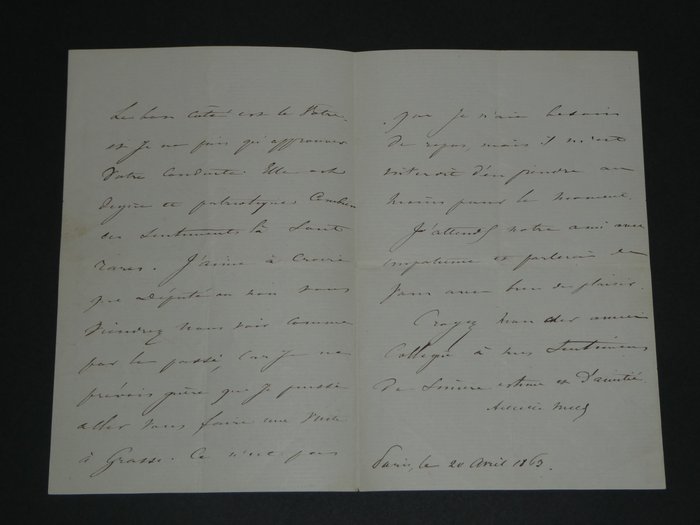 Le bon côté est le Vôtre
et je ne puis qu'approuver
Votre Conduite. Elle est
digne et patriotique. Combien
ces Sentiments là Sont
rares. J'aime à Croire
que Député ou non vous
Viendrez nous voir comme
par le passé, Car Je ne
prévois guère que Je puisse
aller vous faire une Visite
à Grasse. Ce n'est pas
que Je n'aie besoin
de repos mais il m'est
interdit d'en prendre au
moins pour le moment.
J'attends notre ami avec
impatience et parlerai de
Vous avec bien du plaisir.
Croyez mon cher ancien
Collègue à mes Sentiments
de Sincère estime et D'amitié.
Paris, le 20 Avril 1863.